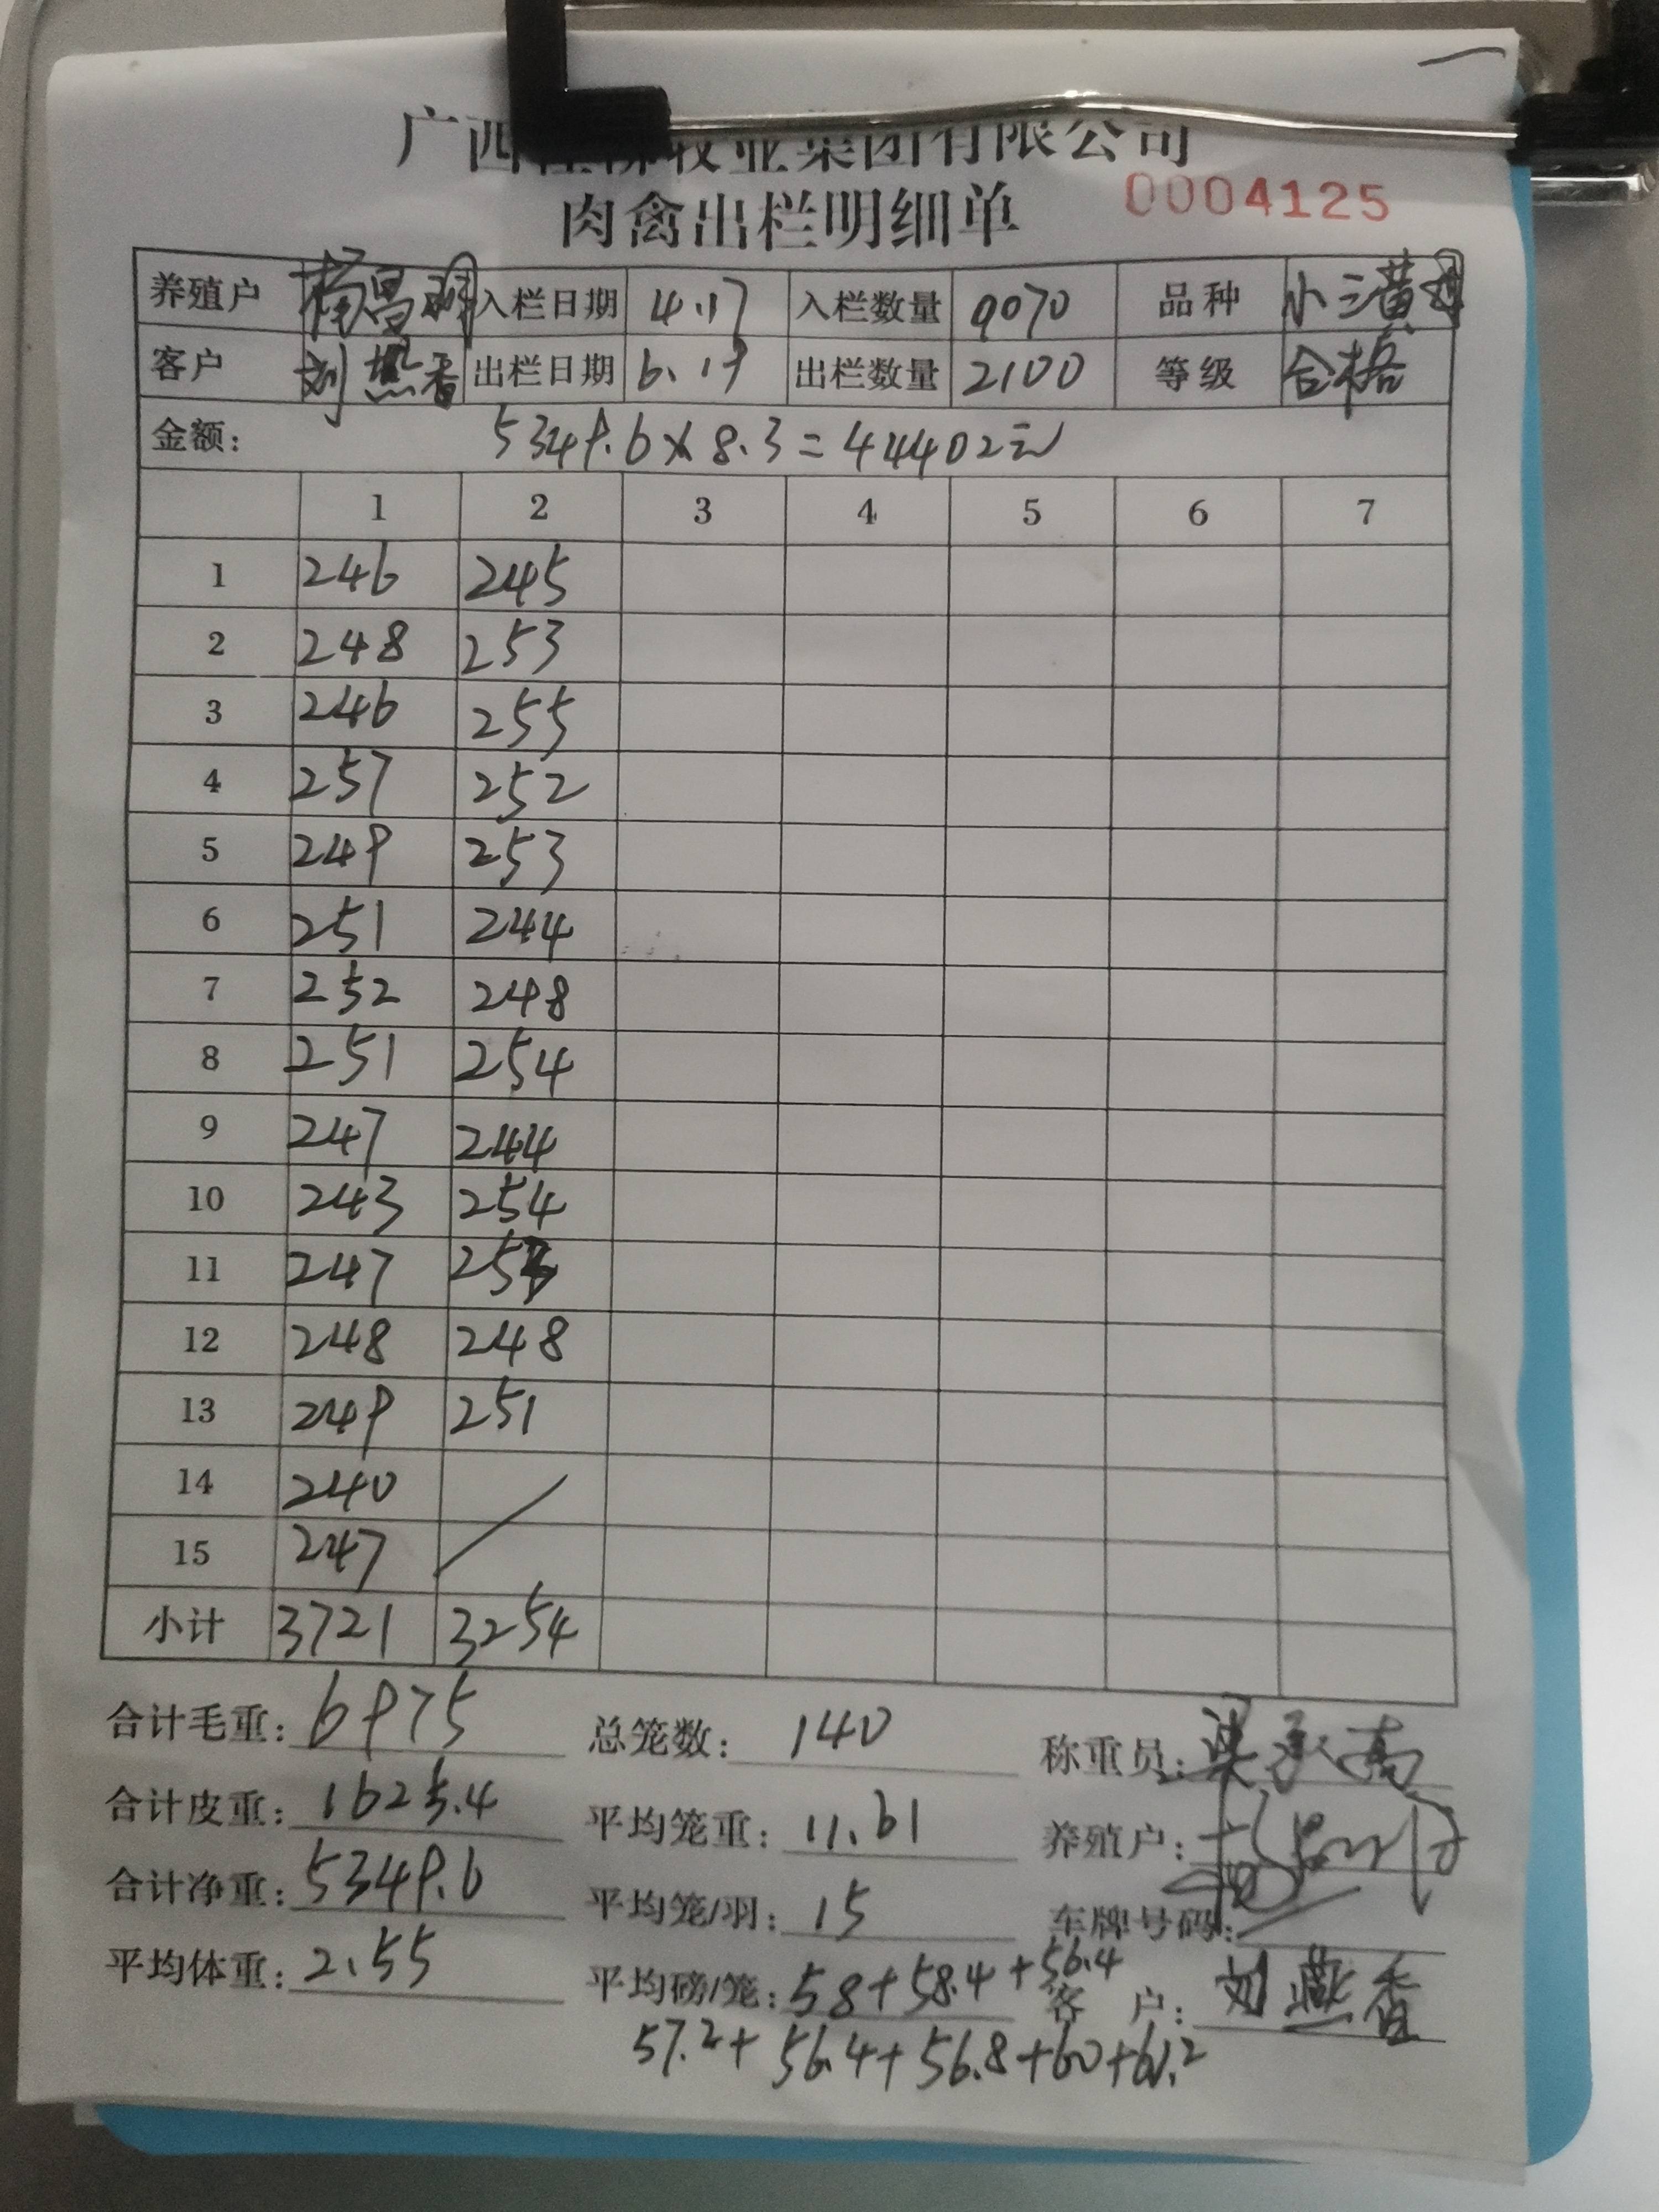 广西桂柳牧业集团有限公司
肉禽出栏明细单 0004125
养殖户 杨昌 入栏日期 4.17 入栏数量 9070 品种 小三黄
客户 刘燕香 出栏日期 6.19 出栏数量 2100 等级 合格
金额: 5349.6×8.3=44402元
1 2 3 4 5 6 7
1 246 245
2 248 253
3 246 255
4 257 252
5 249 253
6 251 244
7 252 248
8 251 254
9 247 244
10 243 254
11 247 253
12 248 248
13 249 251
14 240
15 247
小计 3721 3254
合计毛重: 6975 总笼数: 140 称重员: 梁承高
合计皮重: 1625.4 平均笼重: 11.61 养殖户:
合计净重: 5349.6 平均笼/羽: 15 车牌号码:
平均体重: 2.55 平均磅/笼: 58+58.4+56.4 客户: 刘燕香
57.2+56.4+56.8+60+61.2